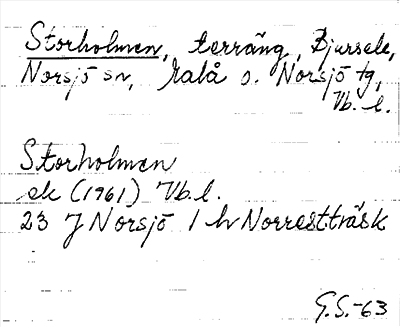 Storholmen, terräng, Bjursele,
Norsjö sn, Malå o. Norsjö tg,
Vb. l.
Storholmen
ek (1961) Vb. l.
23 J Norsjö 1 h Norrestträsk
G.S.-63